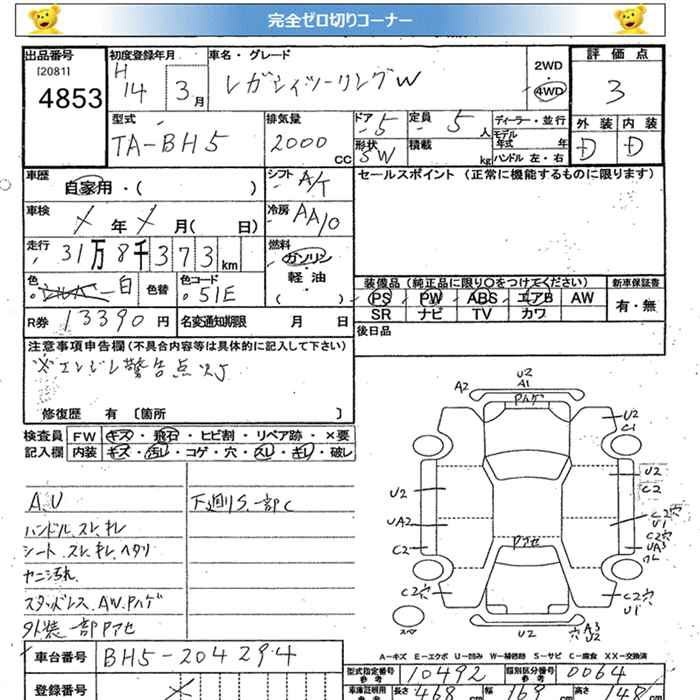 完全ゼロ切りコーナー
出品番号 初度登録年月 車名・グレード 2WD 評価点
[2081] H 14 3月 レガシィツーリングW 4WD 3
4853
型式 排気量 ドア 5 定員 5人 ディーラー・並行 外装 内装
TA-BH5 2000cc 形状 SW 積載 kg モデル年式 年 D D
ハンドル 左・右
車歴 シフト A/T セールスポイント (正常に機能するものに限ります)
自家用・( )
車検 X年X月( 日) 冷房 AAIO
走行 31万8千373km 燃料 ガソリン
軽油
( )
色 シルバー 白 色替 色コード 51E 装備品(純正品に限り○をつけてください) 新車保証書
PS PW ABS エアB AW 有・無
SR ナビ TV カワ
R券 13390円 名変通知期限 月 日 後日品
注意事項申告欄(不具合内容等は具体的に記入して下さい)
※エンジン警告点灯
修復歴 有 〔箇所 〕
検査員 FW キズ・飛石・ヒビ割・リペア跡・×要
記入欄 内装 キズ・汚れ・コゲ・穴・スレ・キレ・破レ
A2 U2
A1
Pハゲ
U2
C1
U2
C2
U2
UA2
C2
C2穴
U1
C2穴
UA3
ワレ
Pアセ
C2穴
C2穴
U1
スペア
U2
穴 A3
U2
A.U 下廻リS.一部C
ハンドル.スレ.キレ
シート.スレ.キレ.ヘタリ
ヤニ汚れ
スタッドレス.AW.Pハゲ
外装一部Pアセ
A-キズ E-エクボ U-凹み W-補修跡 S-サビ C-腐食 XX-交換済
車台番号 BH5-204294
型式指定番号 参考 10492 類別区分番号 参考 0064
登録番号 車庫証明用 参考 長さ 468 cm 幅 169 cm 高さ 148 cm